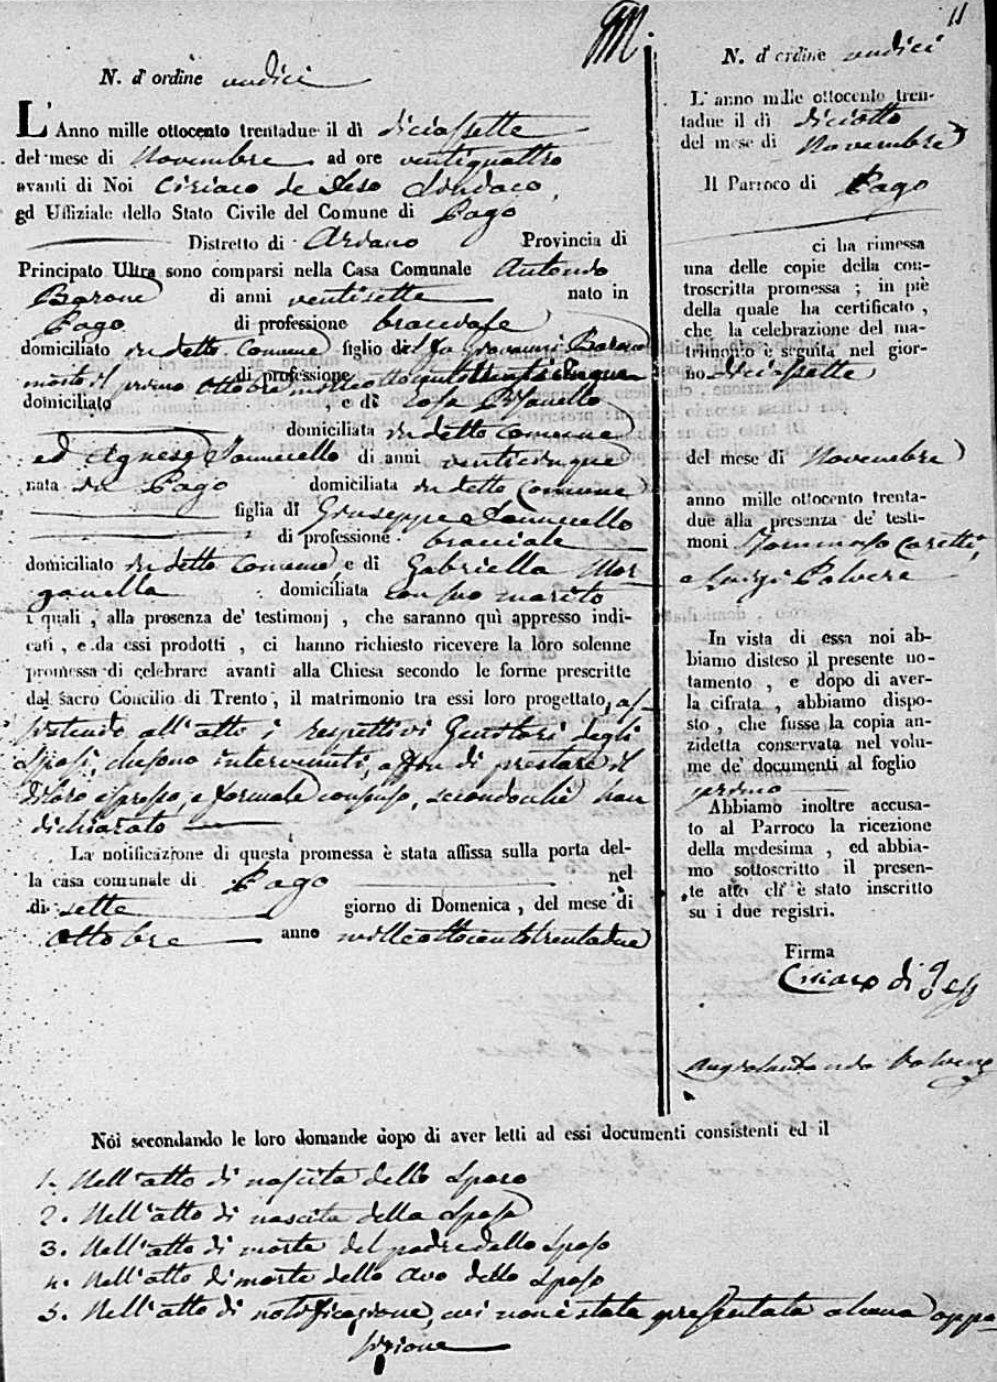 11
N. d' ordine undici
L' Anno mille ottocento trentadue il dì diciassette
del mese di Novembre ad ore ventiquattro
avanti di Noi Ciriaco de Jeso Sindaco,
ed Uffiziale dello Stato Civile del Comune di Pago
Distretto di Ariano Provincia di
Principato Ultra sono comparsi nella Casa Comunale Antonio
Barone di anni ventisette nato in
Pago di professione bracciale
domiciliato in detto Comune figlio del fu Giovanni Barone
morto il primo Ottobre di professione
domiciliato , e di Rosa Pisanello
domiciliata in detto Comune
ed Agnese Iannuzzello di anni venticinque
nata in Pago domiciliata in detto Comune
figlia di Giuseppe
di professione bracciale
domiciliato in detto Comune e di Gabriella Mor-
ganella domiciliata con suo marito
i quali , alla presenza de' testimonj , che saranno quì appresso indi-
cati , e da essi prodotti , ci hanno richiesto ricevere la loro solenne
promessa di celebrare avanti alla Chiesa secondo le forme prescritte
dal sacro Concilio di Trento , il matrimonio tra essi loro progettato, as-
sistendo all'atto i rispettivi Genitori degli
Sposi, che sono intervenuti, a fin di prestare il
di loro espresso, e formale consenso, secondochè han
dichiarato
La notificazione di questa promessa è stata affissa sulla porta del-
la casa comunale di Pago nel
dì sette giorno di Domenica , del mese di
Ottobre anno milleottocentotrentadue
N. d' ordine undici
L' anno mille ottocento tren-
tadue il dì diciotto
del mese di Novembre
Il Parroco di Pago
ci ha rimessa
una delle copie della con-
troscritta promessa ; in piè
della quale ha certificato ,
che la celebrazione del ma-
trimonio è seguita nel gior-
no diciassette
del mese di Novembre
anno mille ottocento trenta-
due alla presenza de' testi-
moni Tommaso Caretti,
e Luigi Polvere
In vista di essa noi ab-
biamo disteso il presente no-
tamento , e dopo di aver-
la cifrata , abbiamo dispo-
sto , che fusse la copia an-
zidetta conservata nel volu-
me de' documenti al foglio
primo
Abbiamo inoltre accusa-
to al Parroco la ricezione
della medesima , ed abbia-
mo sottoscritto il presen-
te atto ch' è stato inscritto
su i due registri.
Firma
Ciriaco di Jeso
Noi secondando le loro domande dopo di aver letti ad essi documenti consistenti ed il
1. Nell'atto di nascita dello Sposo
2. Nell'atto di nascita della Sposa
3. Nell'atto di morte del padre dello Sposo
4. Nell'atto di morte dello avo dello Sposo
5. Nell'atto di notificazione, cui non è stata presentata alcuna oppo-
sizione